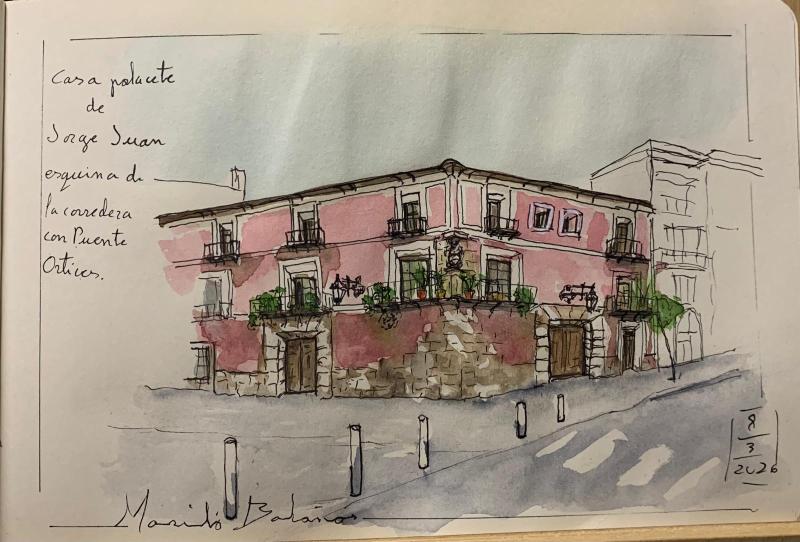 Casa palacete
de
Jorge Juan
esquina de
la corredera
con Puente
Ortices.
8
3
2026